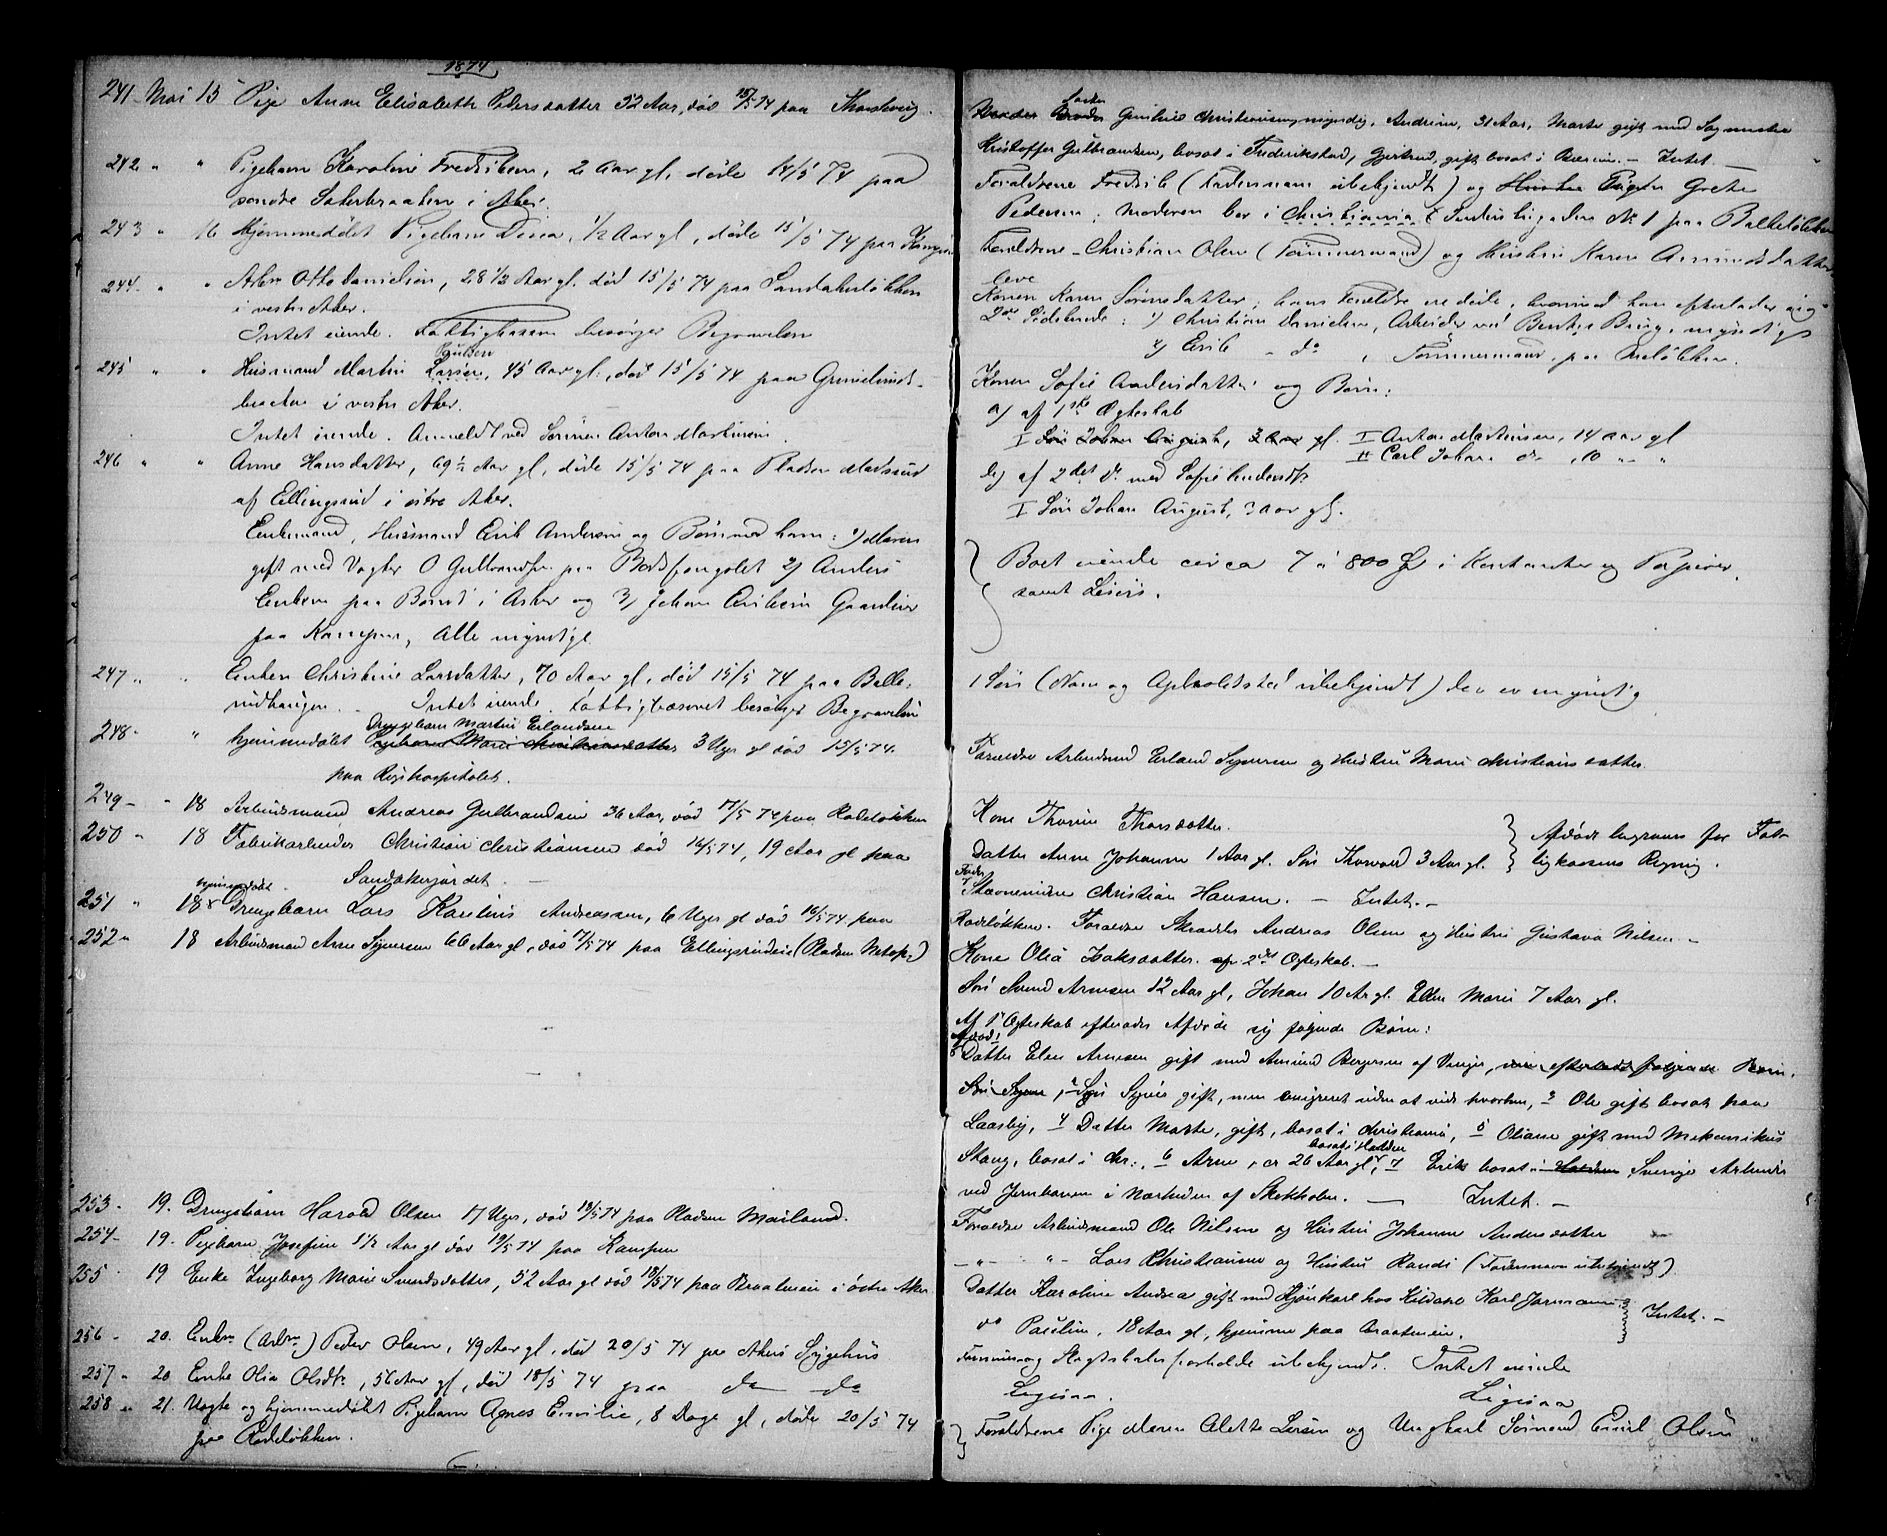 1874
241 Mai 15 Pige Anne Elisabeth Pedersdatter 52 Aar, død 15/5 74 paa
242 " " Pigebarn Karoline Fredriksen, 2 Aar gl, døde 14/5 74 paa
søndre i Aker.
243 " 16 Hjemmedøbt Pigebarn, 1/2 Aar gl, døde 15/5 74 paa Kampen
244 " " Otto Danielsen, 28 1/2 Aar gl. død 15/5 74 paa Sandakerløkken
i vestre Aker.
Intet eiende. Fattigkassen besørger Begravelsen
Poulsen
245 " " Husmand Martin Larsen, 45 Aar gl., død 15/5 74 paa
braaten i vestre Aker.
Intet eiende. Anmeldt ved Sønnen Anton Martinsen.
246 " " Anne Hansdatter, 69 1/2 Aar gl, døde 15/5 74 paa Pladsen
af Ellingsrud i østre Aker.
Enkemand, Husmand Erik Andersen og Børn med ham: 1) Maren
gift med Vogter O Gulbrandsen paa Bodsfængslet 2) Anders
Eriksen paa i Asker og 3) Johan Eriksen
paa Kampen, Alle myndige.
247 " " Enken Christine Larsdatter, 70 Aar gl, død 15/5 74 paa Balle-
rudhaugen. Intet eiende. Fattigvæsenet besørger Begravelsen
Drengebarn Martin Erlandsen
248 " hjemmedøbt Pigebarn Marie Christiansdatter 3 Uger gl død 15/5 74.
paa Rigshospitalet.
249 " 18 Arbeidsmand Andreas Gulbrandsen 36 Aar, død 17/5 74 paa Rodeløkken
250 " 18 Fabrikarbeider Christian Christiansen død 16/5 74, 19 Aar gl paa
Sandakerjordet.
hjemmedøbt
251 " 18 Drengebarn Lars Paulinus Andreassen, 6 Uger gl død 16/5 74 paa
252 " 18 Arbeidsmand Arne Syversen 66 Aar gl, død 17/5 74 paa Ellingsrudeie (Pladsen)
253 19. Drengebarn Harald Olsen 17 Uger, død 18/5 74 paa Pladsen Mailand.
254 19. Pigebarn Josefine 1 1/2 Aar gl død 19/5 74 paa Kampen
255 19 Enke Ingeborg Marie Svendsdatter, 52 Aar gl død 18/5 74 paa Braateneie i østre Aker
256 20. Enkem (Arbm) Peder Olsen, 49 Aar gl, død 20/5 74 paa Akers Sygehus
257 " 20 Enke Olia Olsdtr, 56 Aar gl, død 18/5 74 paa do do
258 " 21. Uægte og hjemmedøbt Pigebarn Agnes Emilie, 8 Dage gl, døde 20/5 74
paa Rodeløkken.
Søster
Broder Christiansen myndig, Andrine, 31 Aar, Marte gift med Sagmester
Kristoffer Gulbrandsen, bosat i Frederikstad, Gjertrud, gift bosat i Bærum. – Intet. –
Forældrene Fredrik (Fadernavn ubekjendt) og Hustru Pigen Grete
Pedersen; Moderen bor i Christiania No 1 paa Balkeløkken
Forældrene Christian Olsen (Tømmermand) og Hustru Karen Amundsdatter
leve
Konen Karen Sørensdatter; hans Forældre ere døde, hvorimod han efterlader sig
2de Sødskende: 1) Christian Danielsen, Arbeider ved Brug, myndig
2) Erik " do , Tømmermand paa
Konen Sofie Andersdatter og Børn:
a) af 1ste Ægteskab
I Søn Johan August, 3 Aar gl. I Anton Martinsen, 14 aar gl
II Carl Johan do , 10 " "
b) af 2det do med Sofie Andersdtr
I Søn Johan August, 3 aar gl.
Boet eiende circa 7 à 800 Spd i Kontanter og Papirer,
samt Løsøre.
1 Søn (Navn og Opholdssted ubekjendt) der er myndig
Forældre Arbeidsmd Erland Syversen og Hustru Marie Christiansdatter
Kone Thorine Thorsdatter.
Datter Anne Johanne 1 Aar gl. Søn Thorvald 3 Aar gl. Afdøde begraves for Fat-
tigkassens Regning.
Fader
Christian Hansen. – Intet. –
Rodeløkken. Forældre Skrædder Andreas Olsen og Hustru Gustava Nilsen. –
Kone Olia Isaksdatter. af 2det Ægteskab. –
Søn Svend Arnesen 12 Aar gl, Johan 10 Ar gl. Ellen Marie 7 Aar gl.
Af 1ste Ægteskab efterlader Afdøde sig følgende Børn:
Datter Elen Arnesen gift med Amund Bergersen af, efterladt følgende Børn.
Søn Syver, 2 Søn Syver gift, men emigreret uden at vide hvorhen, 3 Ole gift bosat paa
Laasby, 4 Datter Marte, gift, bosat i Christiania, 5 Oliane gift med Mekanikus
Skaug, bosat i Chr:, 6 Arne, cr 26 Aar gl, 7 Erik bosat i Sverige Arbeider
ved Jernbanen i Nærheden af Stokholm. – Intet. –
Forældre Arbeidsmand Ole Nilsen og Hustru Johanne Andersdatter
– " – " – Lars Christiansen og Hustru Randi (Fadersnavn ubekjendt)
Datter Karoline Andrea gift med
do Pauline, 18 Aar gl, hjemme paa Braateneie. Intet. –
Formues og Slægtskabsforholde ubekjendt. Intet eiende
Ligesaa. Ligesaa
Forældrene Pige Maren Alette Larsen og Ungkarl Sømand Emil Olsen